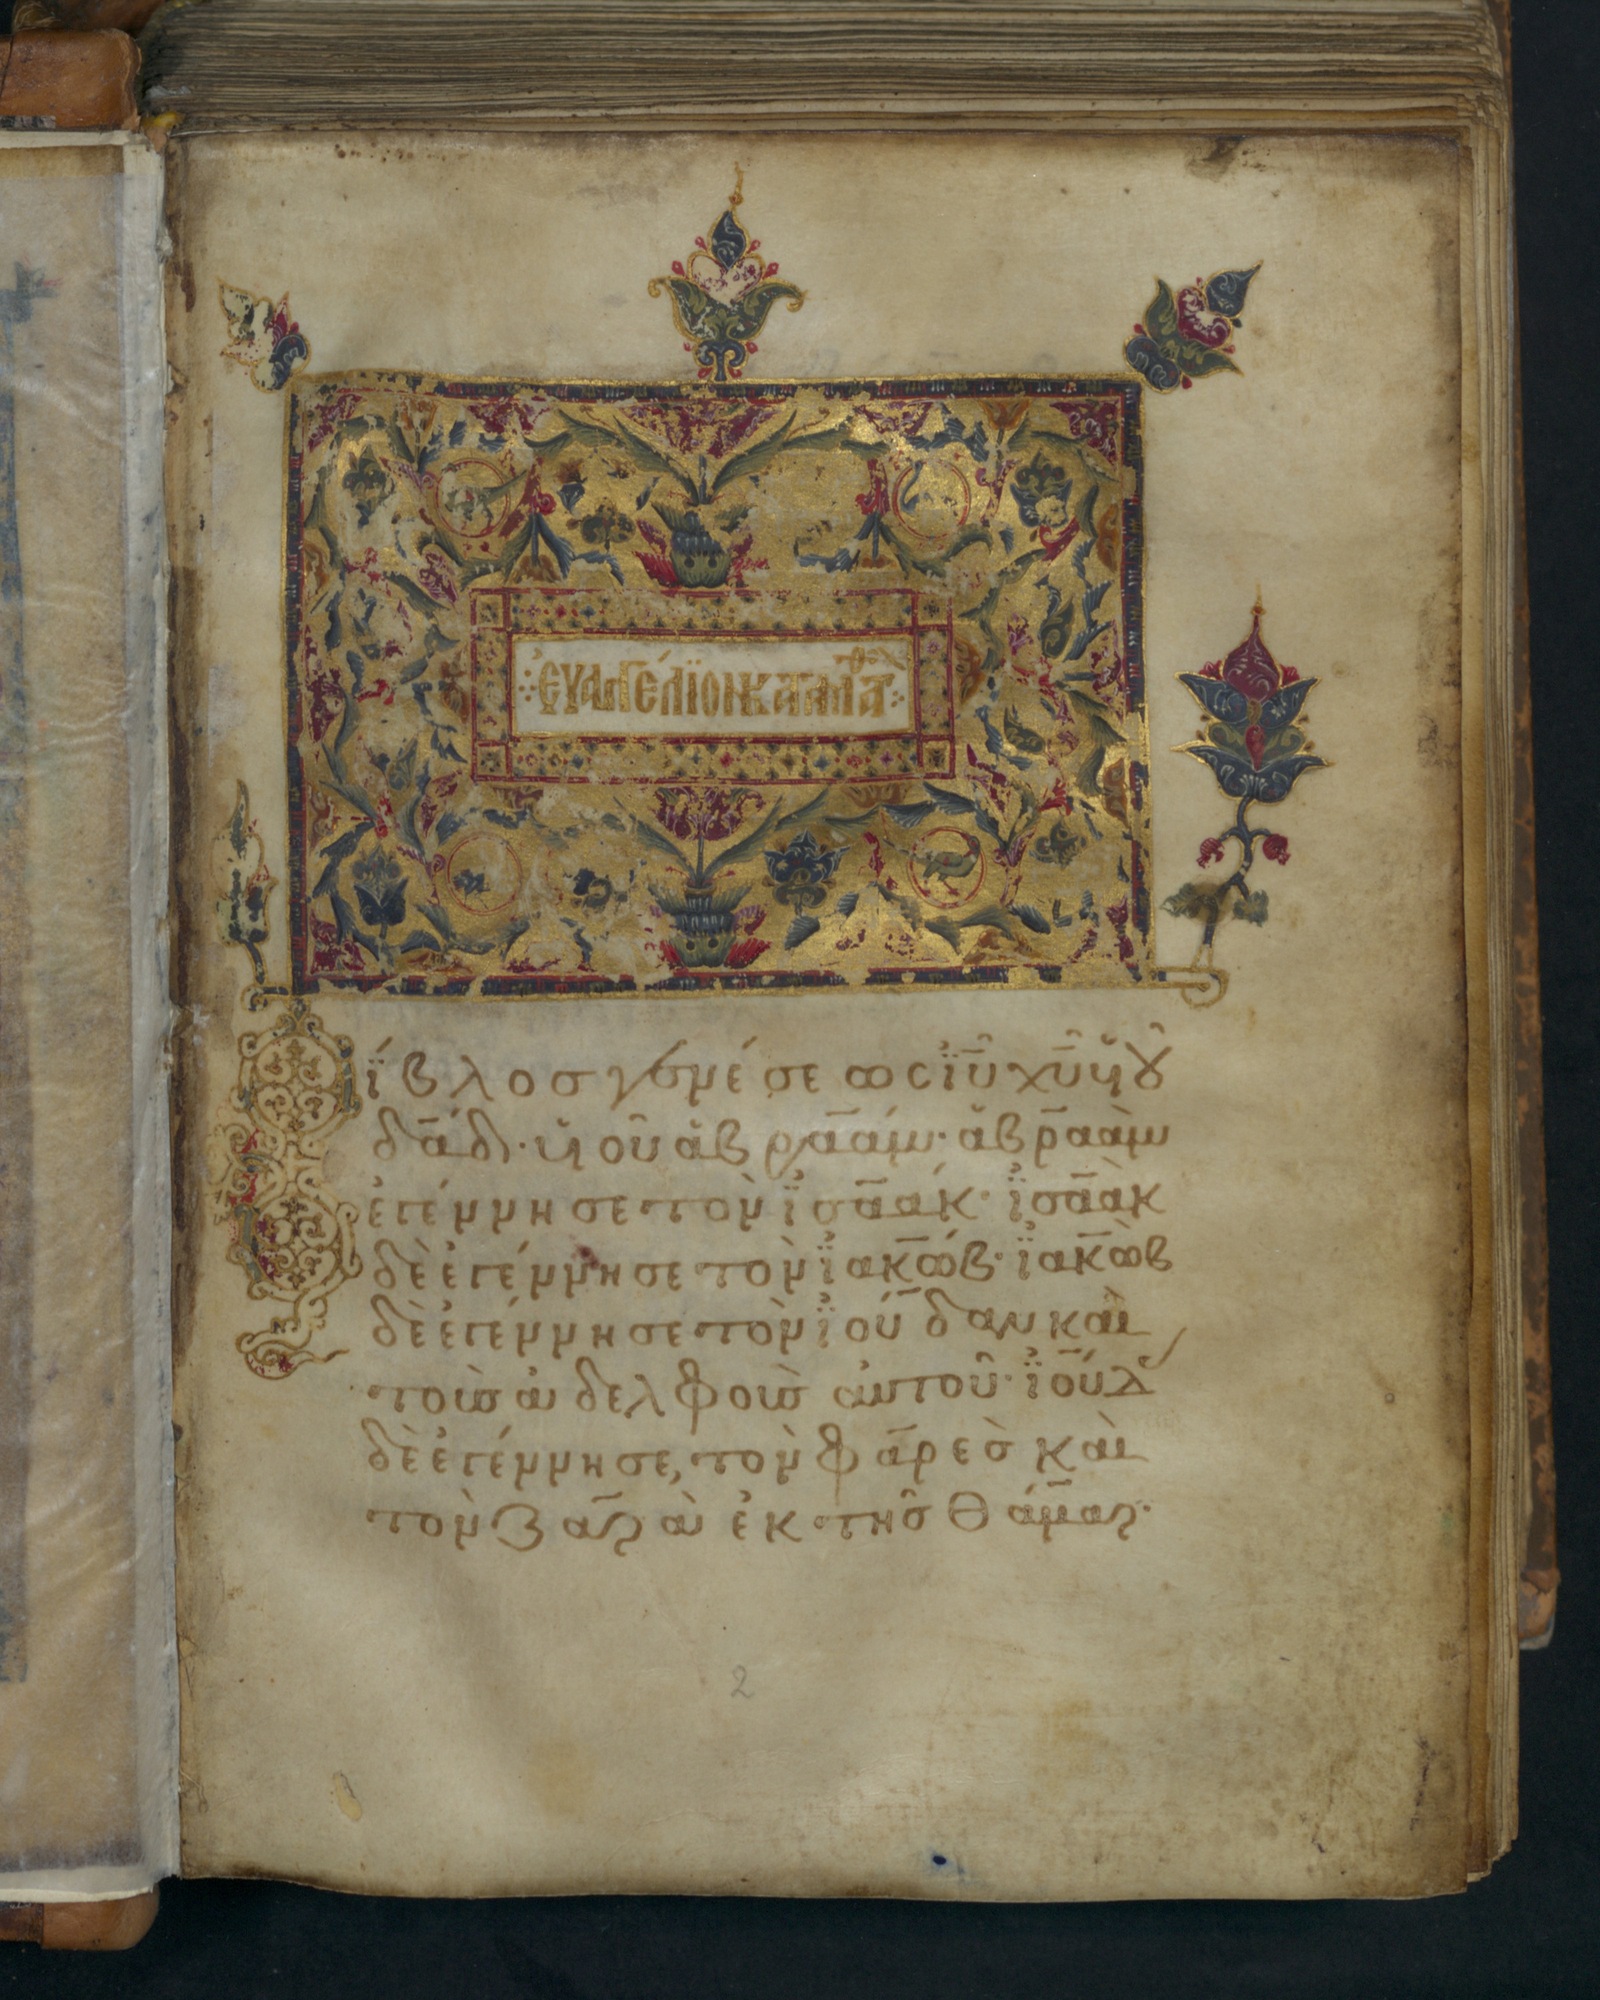 ἐυαγγέλϊον κατα ματθ
Βίβλος γενέσεως ἰῡ χῡ ὑιοῦ
δᾱδ· ὑιοῦ ἀβραάμ· ἀβραὰμ
ἐγέννησε τὸν ἰσαάκ· ἰσαὰκ
δὲ ἐγέννησε τὸν ἰακώβ· ἰακὼβ
δὲ ἐγέννησε τὸν ἰούδαν καὶ
τοὺς ἀδελφοὺς ἀυτοῦ· ἰούδας
δὲ ἐγέννησε, τὸν φάρες καὶ
τὸν ζαρὰ ἐκ τῆς θάμαρ·
2